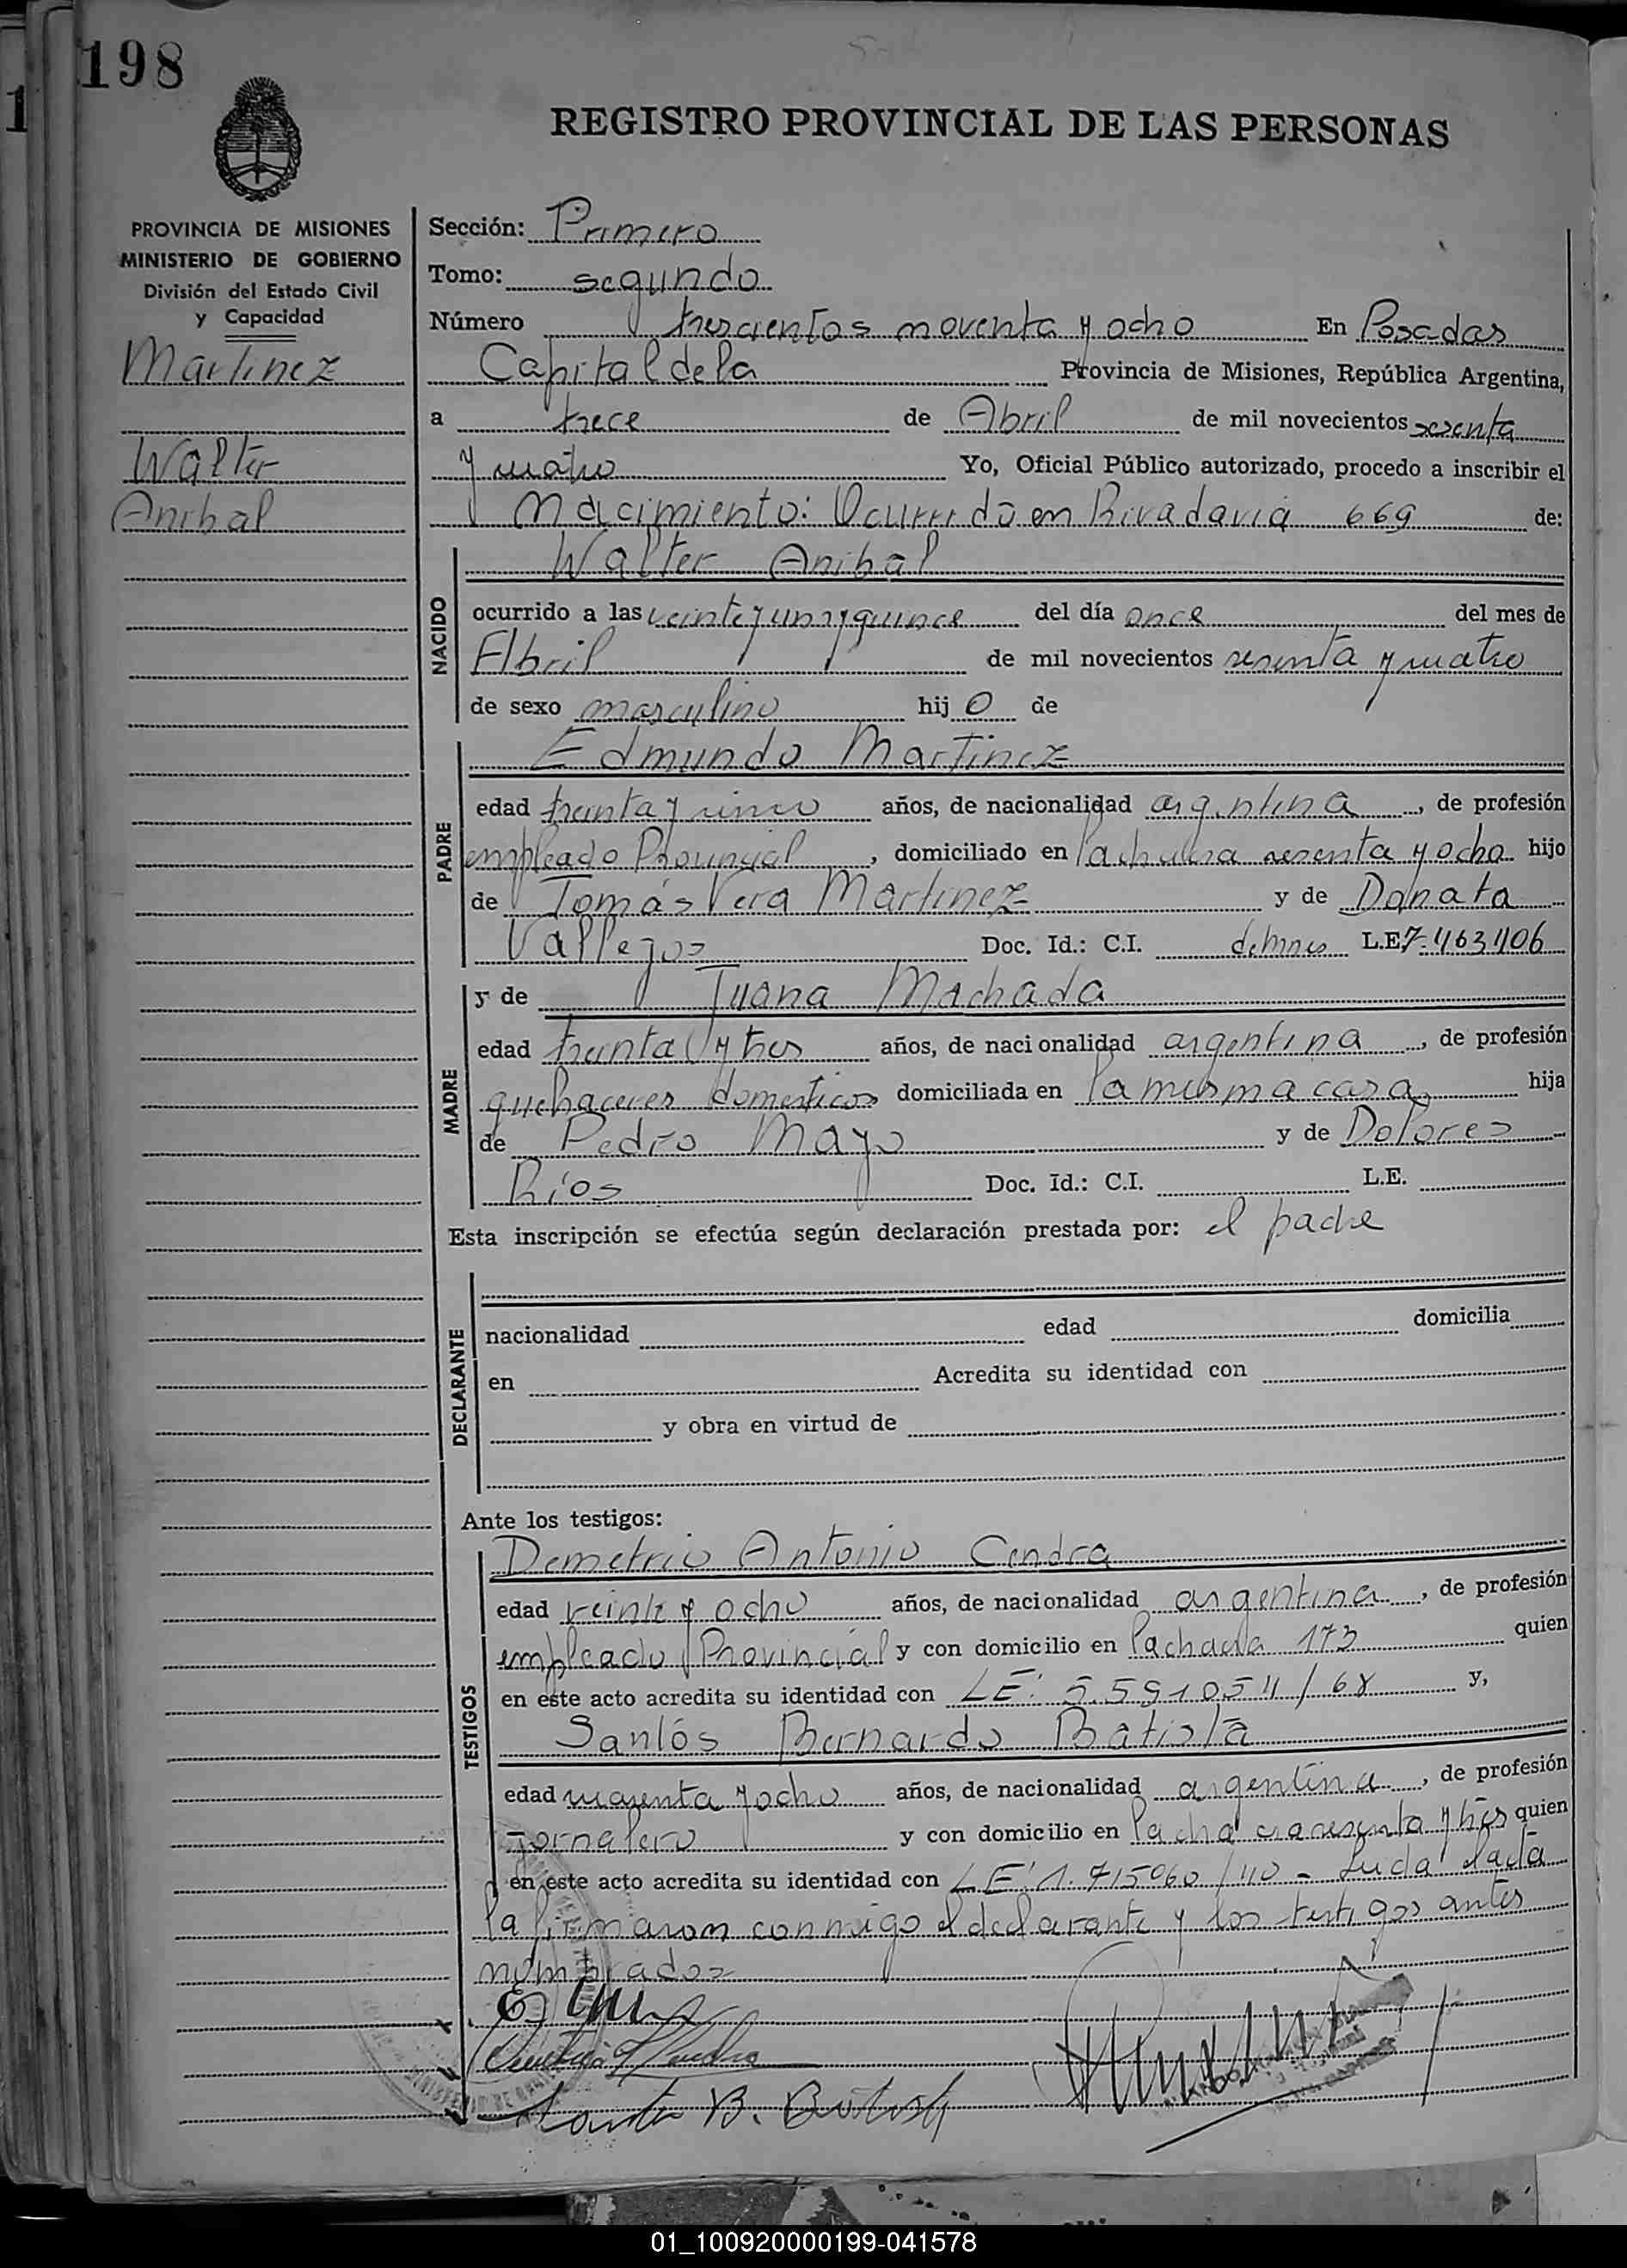 198
1
REGISTRO PROVINCIAL DE LAS PERSONAS
PROVINCIA DE MISIONES
MINISTERIO DE GOBIERNO
División del Estado Civil
y Capacidad
Martinez
Walter
Anibal
Sección: Primero
Tomo: segundo
Número trescientos noventa y ocho En Posadas
Capital de la Provincia de Misiones, República Argentina,
a trece de Abril de mil novecientos sesenta
y cuatro Yo, Oficial Público autorizado, procedo a inscribir el
Nacimiento: Ocurrido en Rivadavia 669 de:
NACIDO
Walter Anibal
ocurrido a las veinte y una y quince del día once del mes de
Abril de mil novecientos sesenta y cuatro
de sexo masculino hijo de
PADRE
Edmundo Martinez
edad treinta y cinco años, de nacionalidad argentina, de profesión
empleado Provincial, domiciliado en sesenta y ocho hijo
de Tomás Vera Martinez y de Donata
Vallejos Doc. Id.: C.I. L.E. 7.463406
MADRE
y de Juana Machada
edad treinta y tres años, de nacionalidad argentina, de profesión
quehaceres domesticos domiciliada en la misma casa hija
de Pedro Mayo y de Dolores
Ríos Doc. Id.: C.I. L.E.
Esta inscripción se efectúa según declaración prestada por: el padre
DECLARANTE
nacionalidad edad domicilia
en Acredita su identidad con
y obra en virtud de
Ante los testigos:
TESTIGOS
Demetrio Antonio Cendra
edad veinte y ocho años, de nacionalidad argentina, de profesión
empleado Provincial y con domicilio en 173 quien
en este acto acredita su identidad con LE: y,
Santos Bernardo Batista
edad cuarenta y ocho años, de nacionalidad argentina, de profesión
Jornalero y con domicilio en y tres quien
en este acto acredita su identidad con LE: 1.715060/40 - Leida el acta
la firmaron conmigo el declarante y los testigos antes
nombrados
B. Batista
01_100920000199-041578